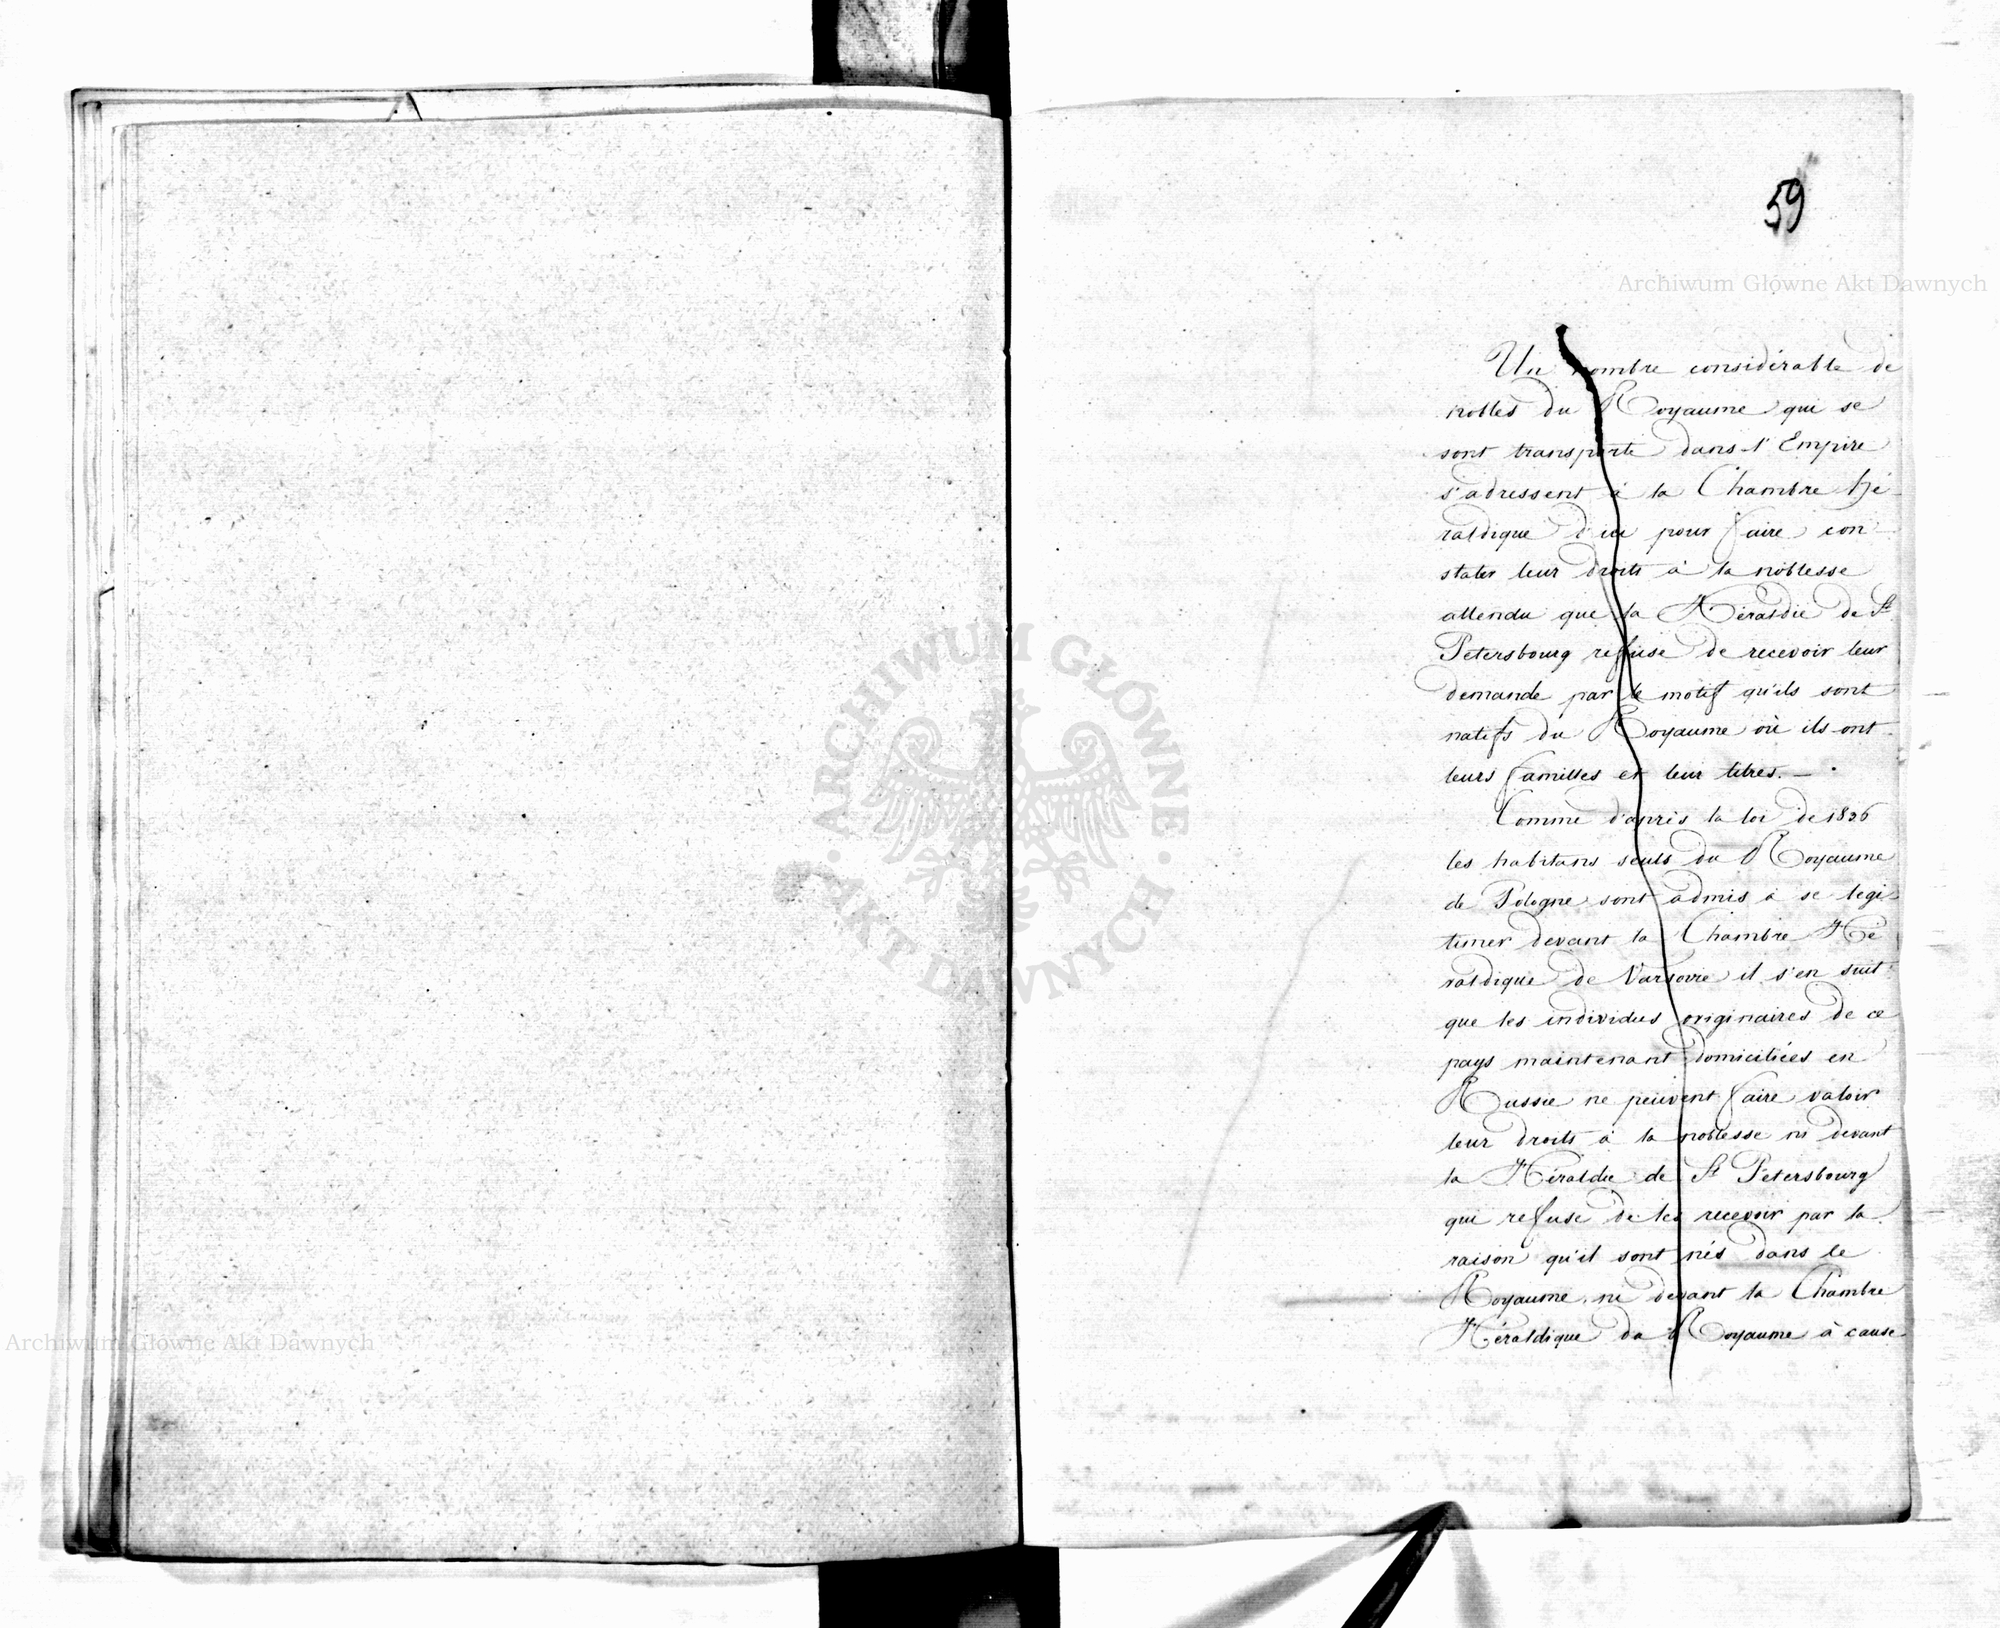 59
Archiwum Główne Akt Dawnych
Un nombre considérable de
nobles du Royaume qui se
sont transporté dans l'Empire
s'adressent à la Chambre Hé-
raldique d'ici pour faire con-
stater leur droits à la noblesse
attendu que la Héraldie de St
Petersbourg refuse de recevoir leur
demande par le motif qu'ils sont
natifs du Royaume où ils ont
leurs familles et leur titres. —
Comme d'après la loi de 1836
les habitans seuls du Royaume
de Pologne sont admis à se légi-
timer devant la Chambre Hé
raldique de Varsovie il s'en suit
que les individus originaires de ce
pays maintenant domiciliées en
Russie ne peuvent faire valoir
leur droits à la noblesse ni devant
la Héraldie de St Petersbourg
qui refuse de les recevoir par la
raison qu'il sont nés dans le
Royaume, ni devant la Chambre
Héraldique du Royaume à cause
ARCHIWUM GŁÓWNE
AKT DAWNYCH
Archiwum Główne Akt Dawnych